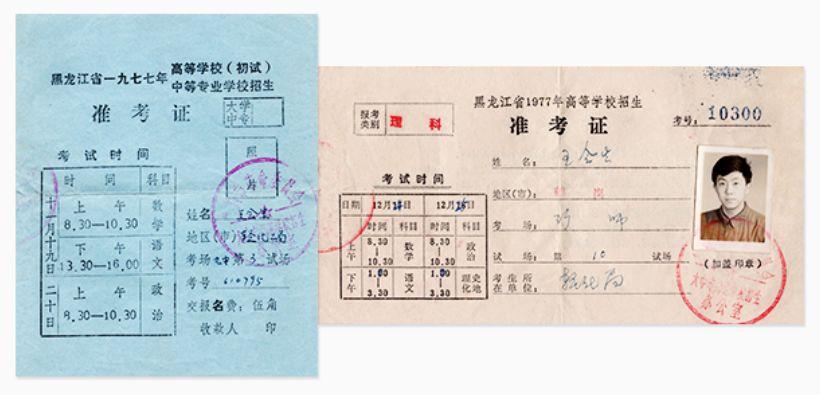 黑龙江省一九七七年高等学校（初试）
中等专业学校招生
准考证
大学
中专
照
片
考试时间
时间 科目
十一月十九日
上午 数学
8.30—10.30
下午 语文
13.30—16.00
二十日
上午 政治
8.30—10.30
姓名
地区(市)
考场 第3试场
考号 610795
交报名费：伍角
收款人 印
黑龙江省1977年高等学校招生
准考证
考号：10300
报考类别 理科
考试时间
日期 12月24日 12月25日
时间 科目 时间 科目
上午 8.30—10.30 数学 8.30—10.30 政治
下午 1.00—3.30 语文 1.00—3.30 理化 史地
姓名：王会生
地区(市)：
考场：
试场：第10试场
考生所在单位：
(加盖印章)
办公室